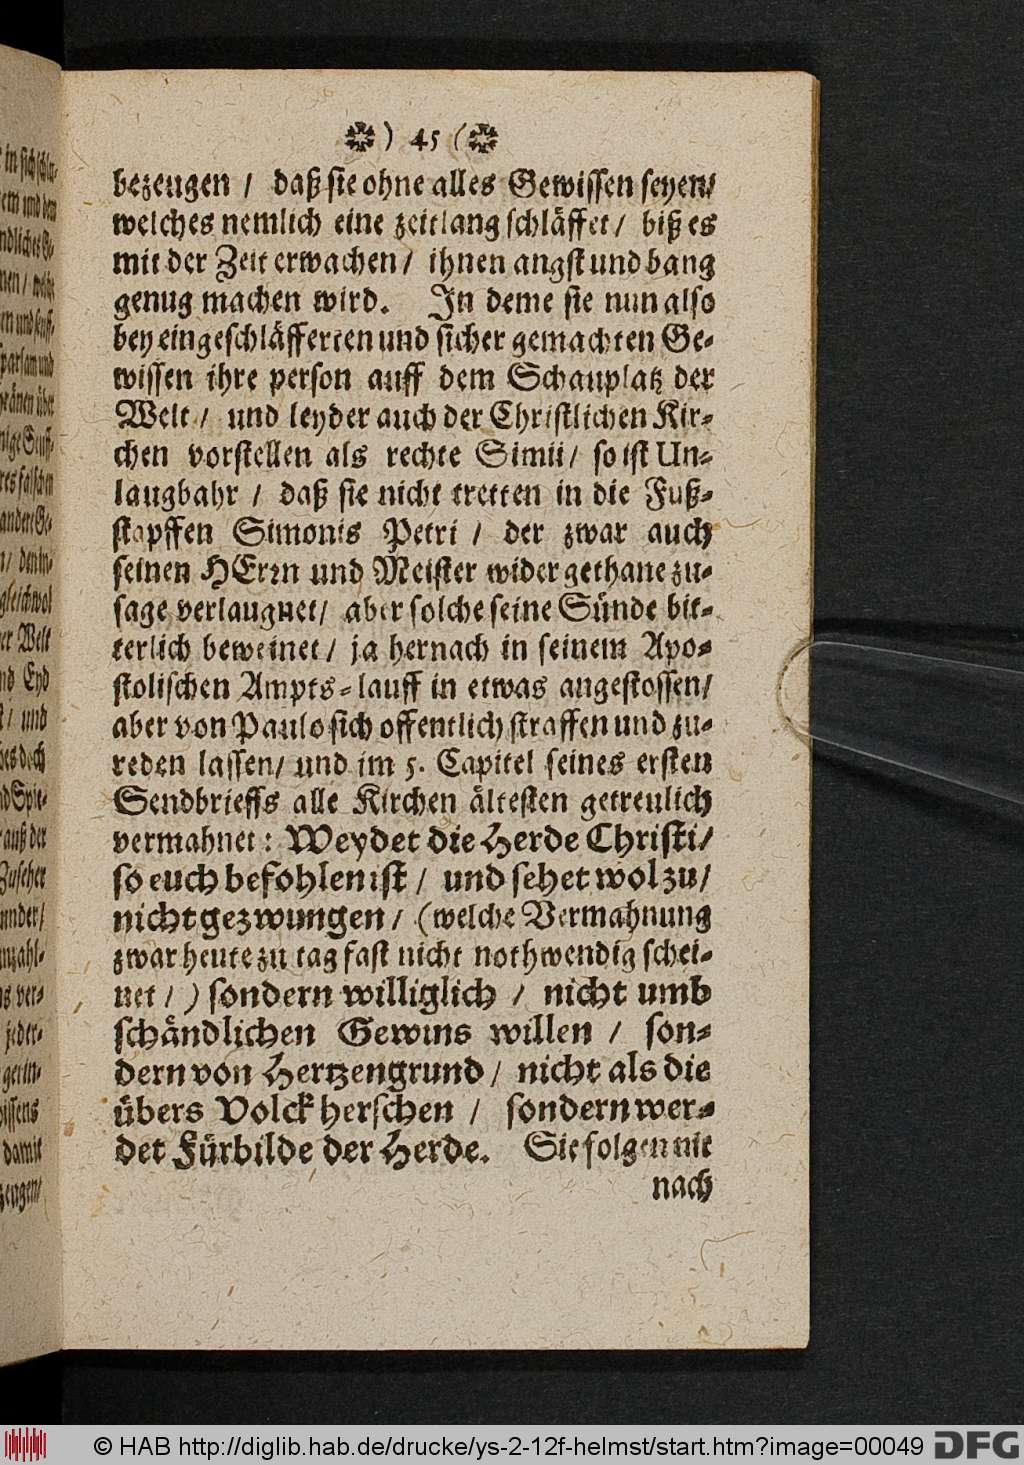 ) 45 (
bezeugen / daß sie ohne alles Gewissen seyen/
welches nemlich eine zeitlang schläffet / biß es
mit der Zeit erwachen / ihnen angst und bang
genug machen wird. In deme sie nun also
bey eingeschläfferten und sicher gemachten Ge-
wissen ihre person auff dem Schauplatz der
Welt / und leyder auch der Christlichen Kir-
chen vorstellen als rechte Simii / so ist Un-
laugbahr / daß sie nicht tretten in die Fuß-
stapffen Simonis Petri / der zwar auch
seinen HErrn und Meister wider gethane zu-
sage verlaugnet / aber solche seine Sünde bit-
terlich beweinet / ja hernach in seinem Apo-
stolischen Ampts-lauff in etwas angestossen/
aber von Paulo sich offentlich straffen und zu-
reden lassen/ und im 5. Capitel seines ersten
Sendbrieffs alle Kirchen ältesten getreulich
vermahnet: Weydet die Herde Christi/
so euch befohlen ist / und sehet wol zu/
nicht gezwungen / (welche Vermahnung
zwar heute zu tag fast nicht nothwendig schei-
net / ) sondern williglich / nicht umb
schändlichen Gewins willen / son-
dern von Hertzengrund / nicht als die
übers Volck herschen / sondern wer-
det Fürbilde der Herde. Sie folgen nit
nach
© HAB http://diglib.hab.de/drucke/ys-2-12f-helmst/start.htm?image=00049
DFG